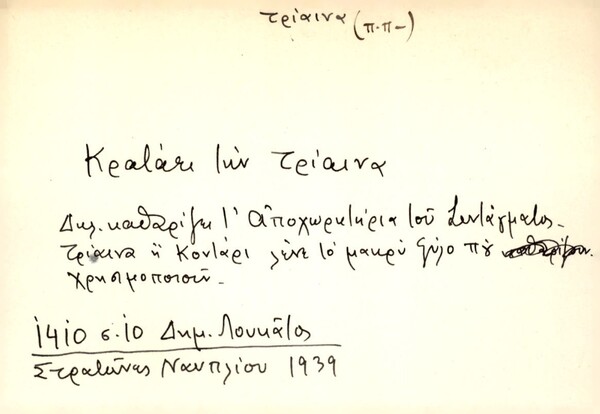 τρίαινα (π.π-)
Κρατάει τὴν τρίαινα
Δηλ. καθαρίζει τ' ἀποχωρητήρια τοῦ Συντάγματος.
Τρίαινα ἢ Κοντάρι λένε τὸ μακρὺ ξύλο ποὺ
χρησιμοποιοῦν.
1410 σ.10 Δημ. Λουκᾶτος
Στρατώνας Ναυπλίου 1939